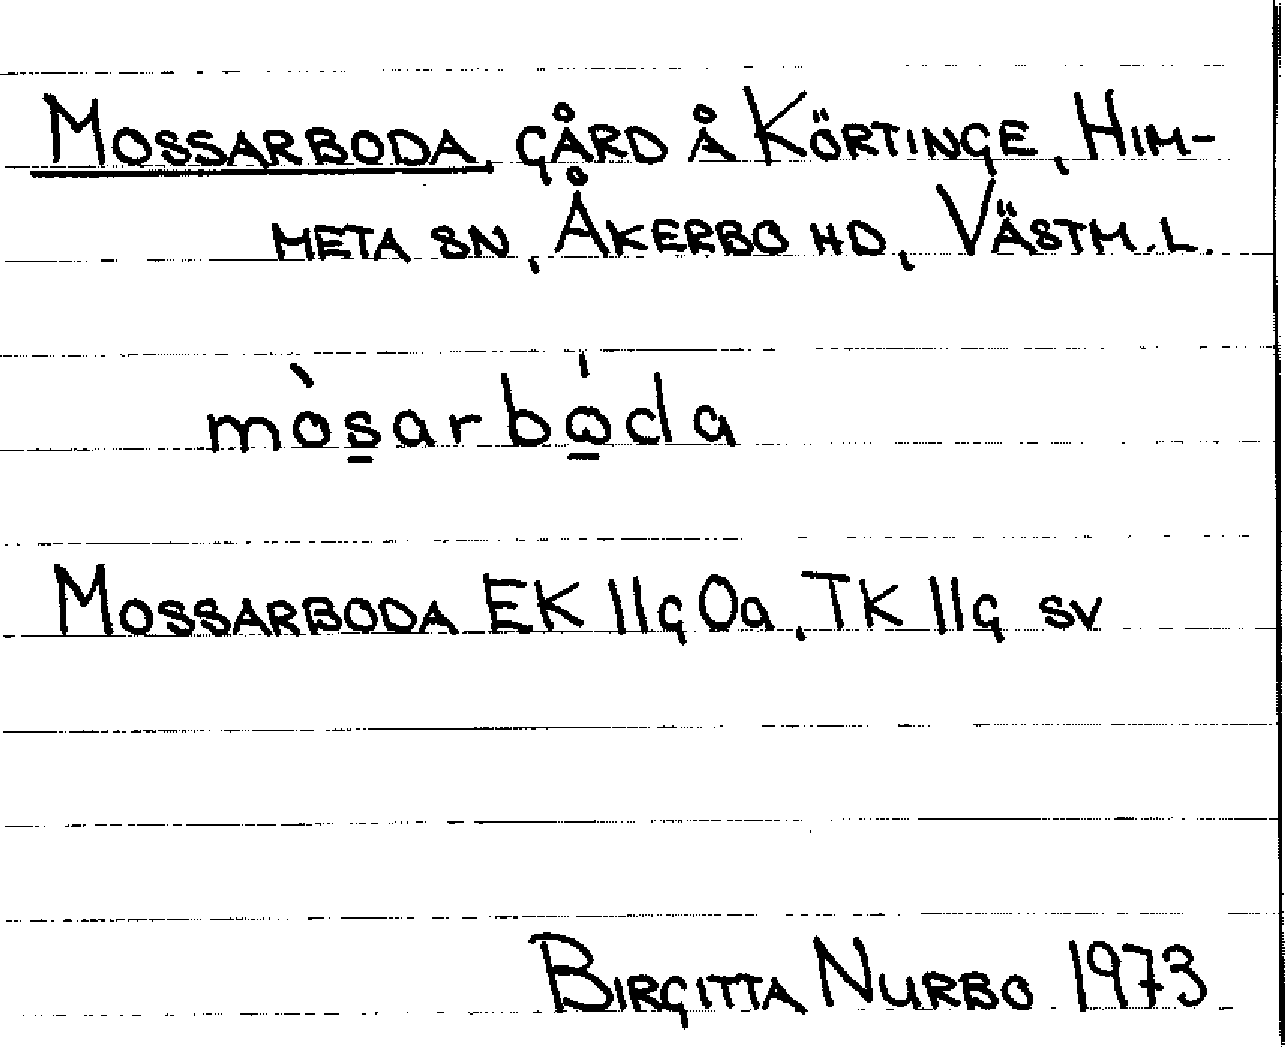 MOSSARBODA, GÅRD Å KÖRTINGE, HIM-
META SN, ÅKERBO HD, VÄSTM. L.
mòs̲arbώ̲da
MOSSARBODA EK 11g0a, TK 11g SV
BIRGITTA NURBO 1973